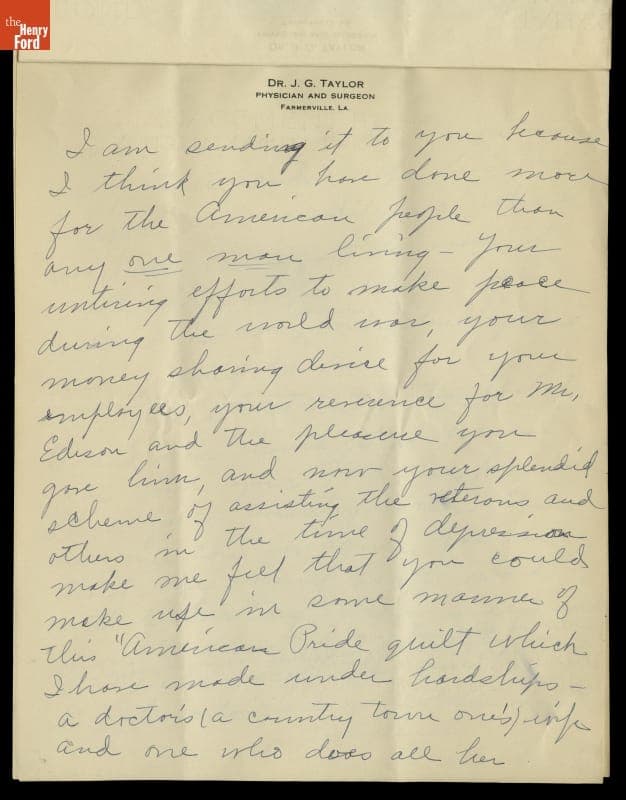 the
Henry
Ford
DR. J. G. TAYLOR
PHYSICIAN AND SURGEON
FARMERVILLE, LA.
I am sending it to you because
I think you have done more
for the American people than
any one man living - Your
untiring efforts to make peace
during the world war, your
money sharing device for your
employees, your reverence for Mr,
Edison and the pleasure you
gave him, and now your splendid
scheme of assisting the veterans and
others in the time of depression
make me feel that you could
make use in some manner of
this "American Pride quilt which
I have made under hardships -
a doctor's (a country town one's) wife
and one who does all her